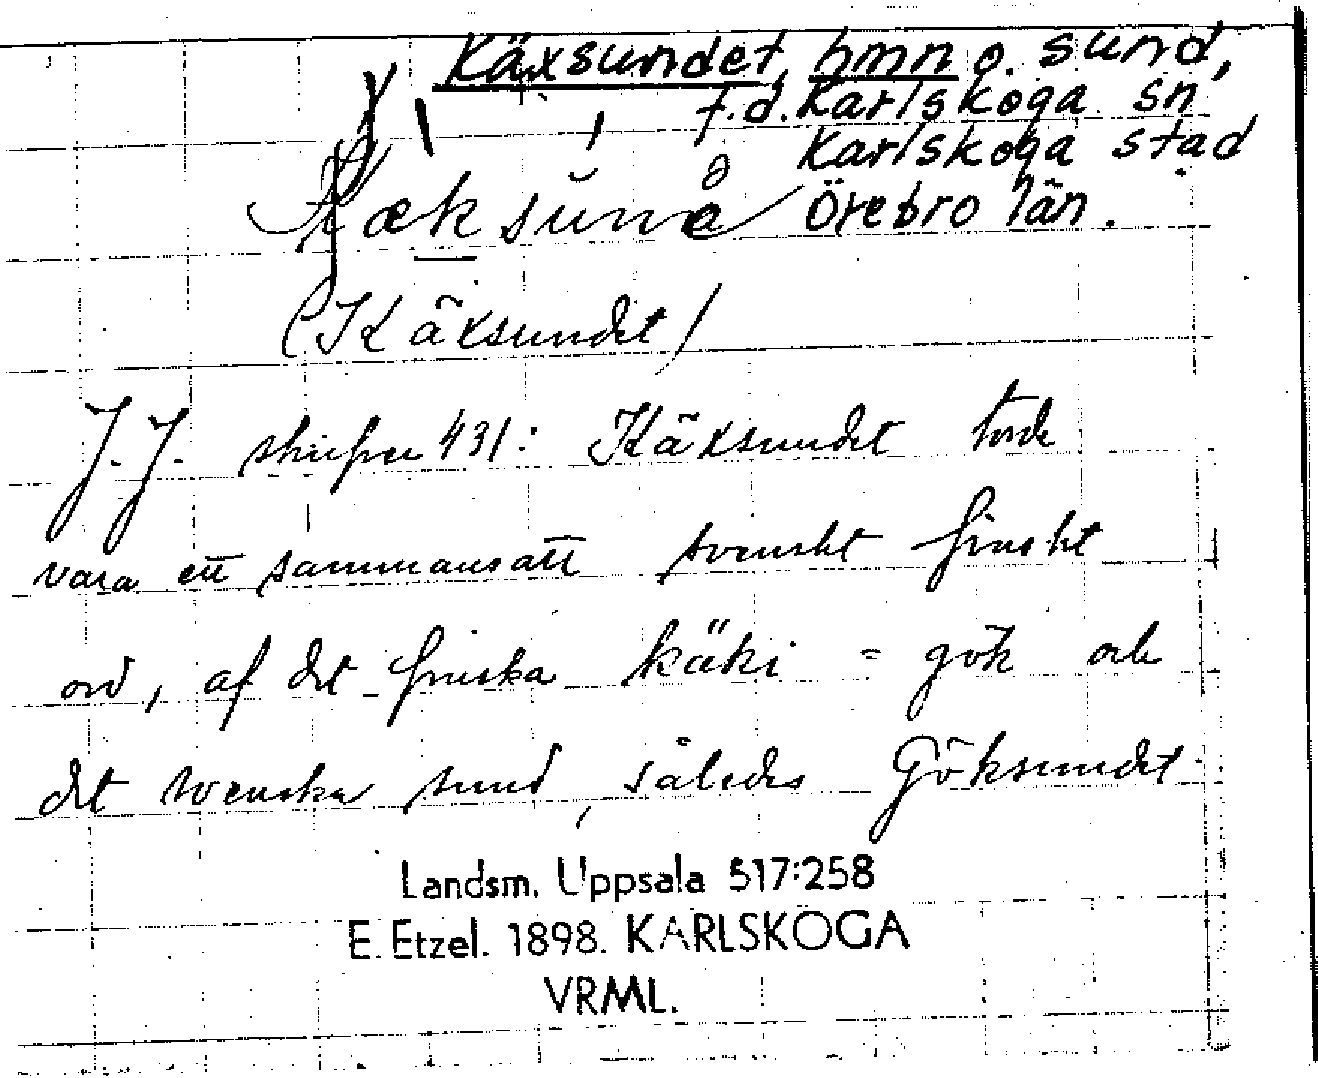 Käxsundet, hmn o. sund,
f.d. Karlskoga sn
Karlskoga stad
Örebro län.
(Käxsundet)
J.J. skrifver 431: Käxsundet torde
vara ett sammansatt svenskt finskt
ord, af det finska käki = gök och
det svenska sund, således Göksundet
Landsm. Uppsala 517:258
E. Etzel. 1898. KARLSKOGA
VRML.